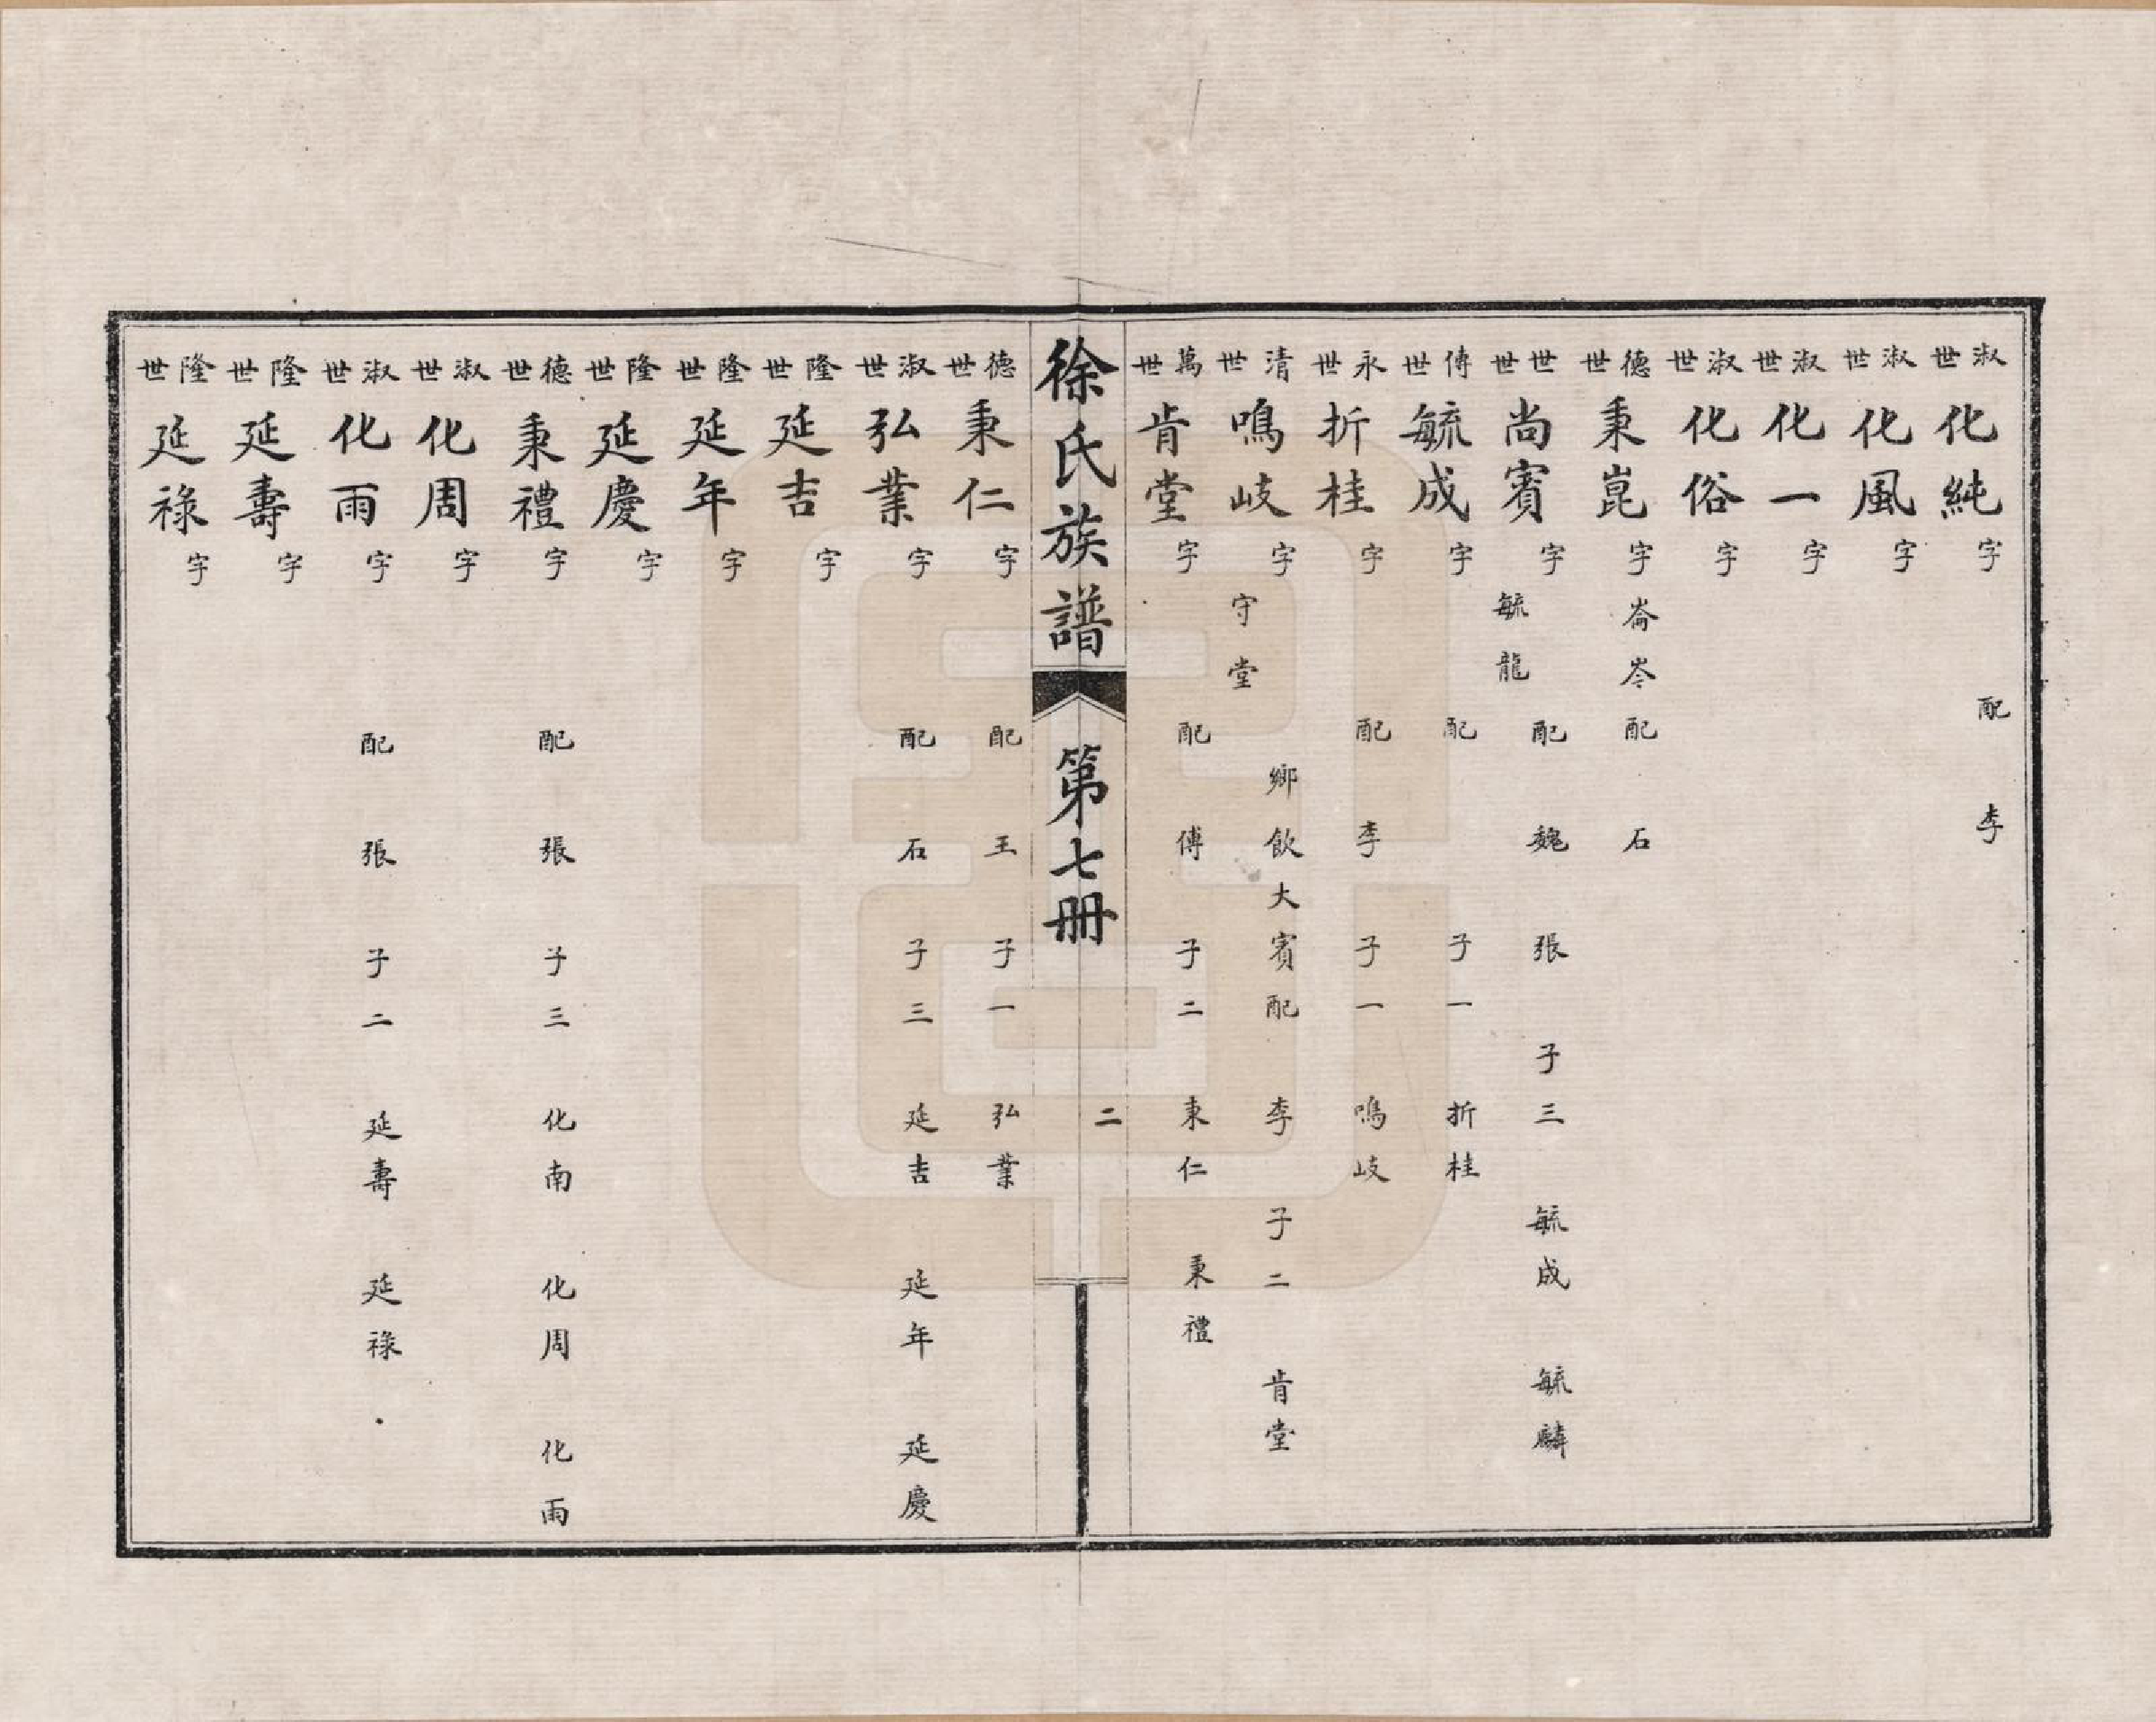 淑世 化純 字 配 李
淑世 化風 字
淑世 化一 字
淑世 化俗 字
德世 秉崑 字 崙岑 配 石
世世 尚賓 字 毓龍 配 魏 張 子三 毓成 毓麟
傳世 毓成 字 配 子一 折桂
永世 折桂 字 配 李 子一 鳴岐
清世 鳴岐 字 守堂 鄉飲大賓 配 李 子二 肯堂
萬世 肯堂 字 配 傅 子二 秉仁 秉禮
徐氏族譜 第七冊 二
德世 秉仁 字 配 王 子一 弘業
淑世 弘業 字 配 石 子三 延吉 延年 延慶
隆世 延吉 字
隆世 延年 字
隆世 延慶 字
德世 秉禮 字 配 張 子三 化南 化周 化雨
淑世 化周 字
淑世 化雨 字 配 張 子二 延壽 延祿
隆世 延壽 字
隆世 延祿 字